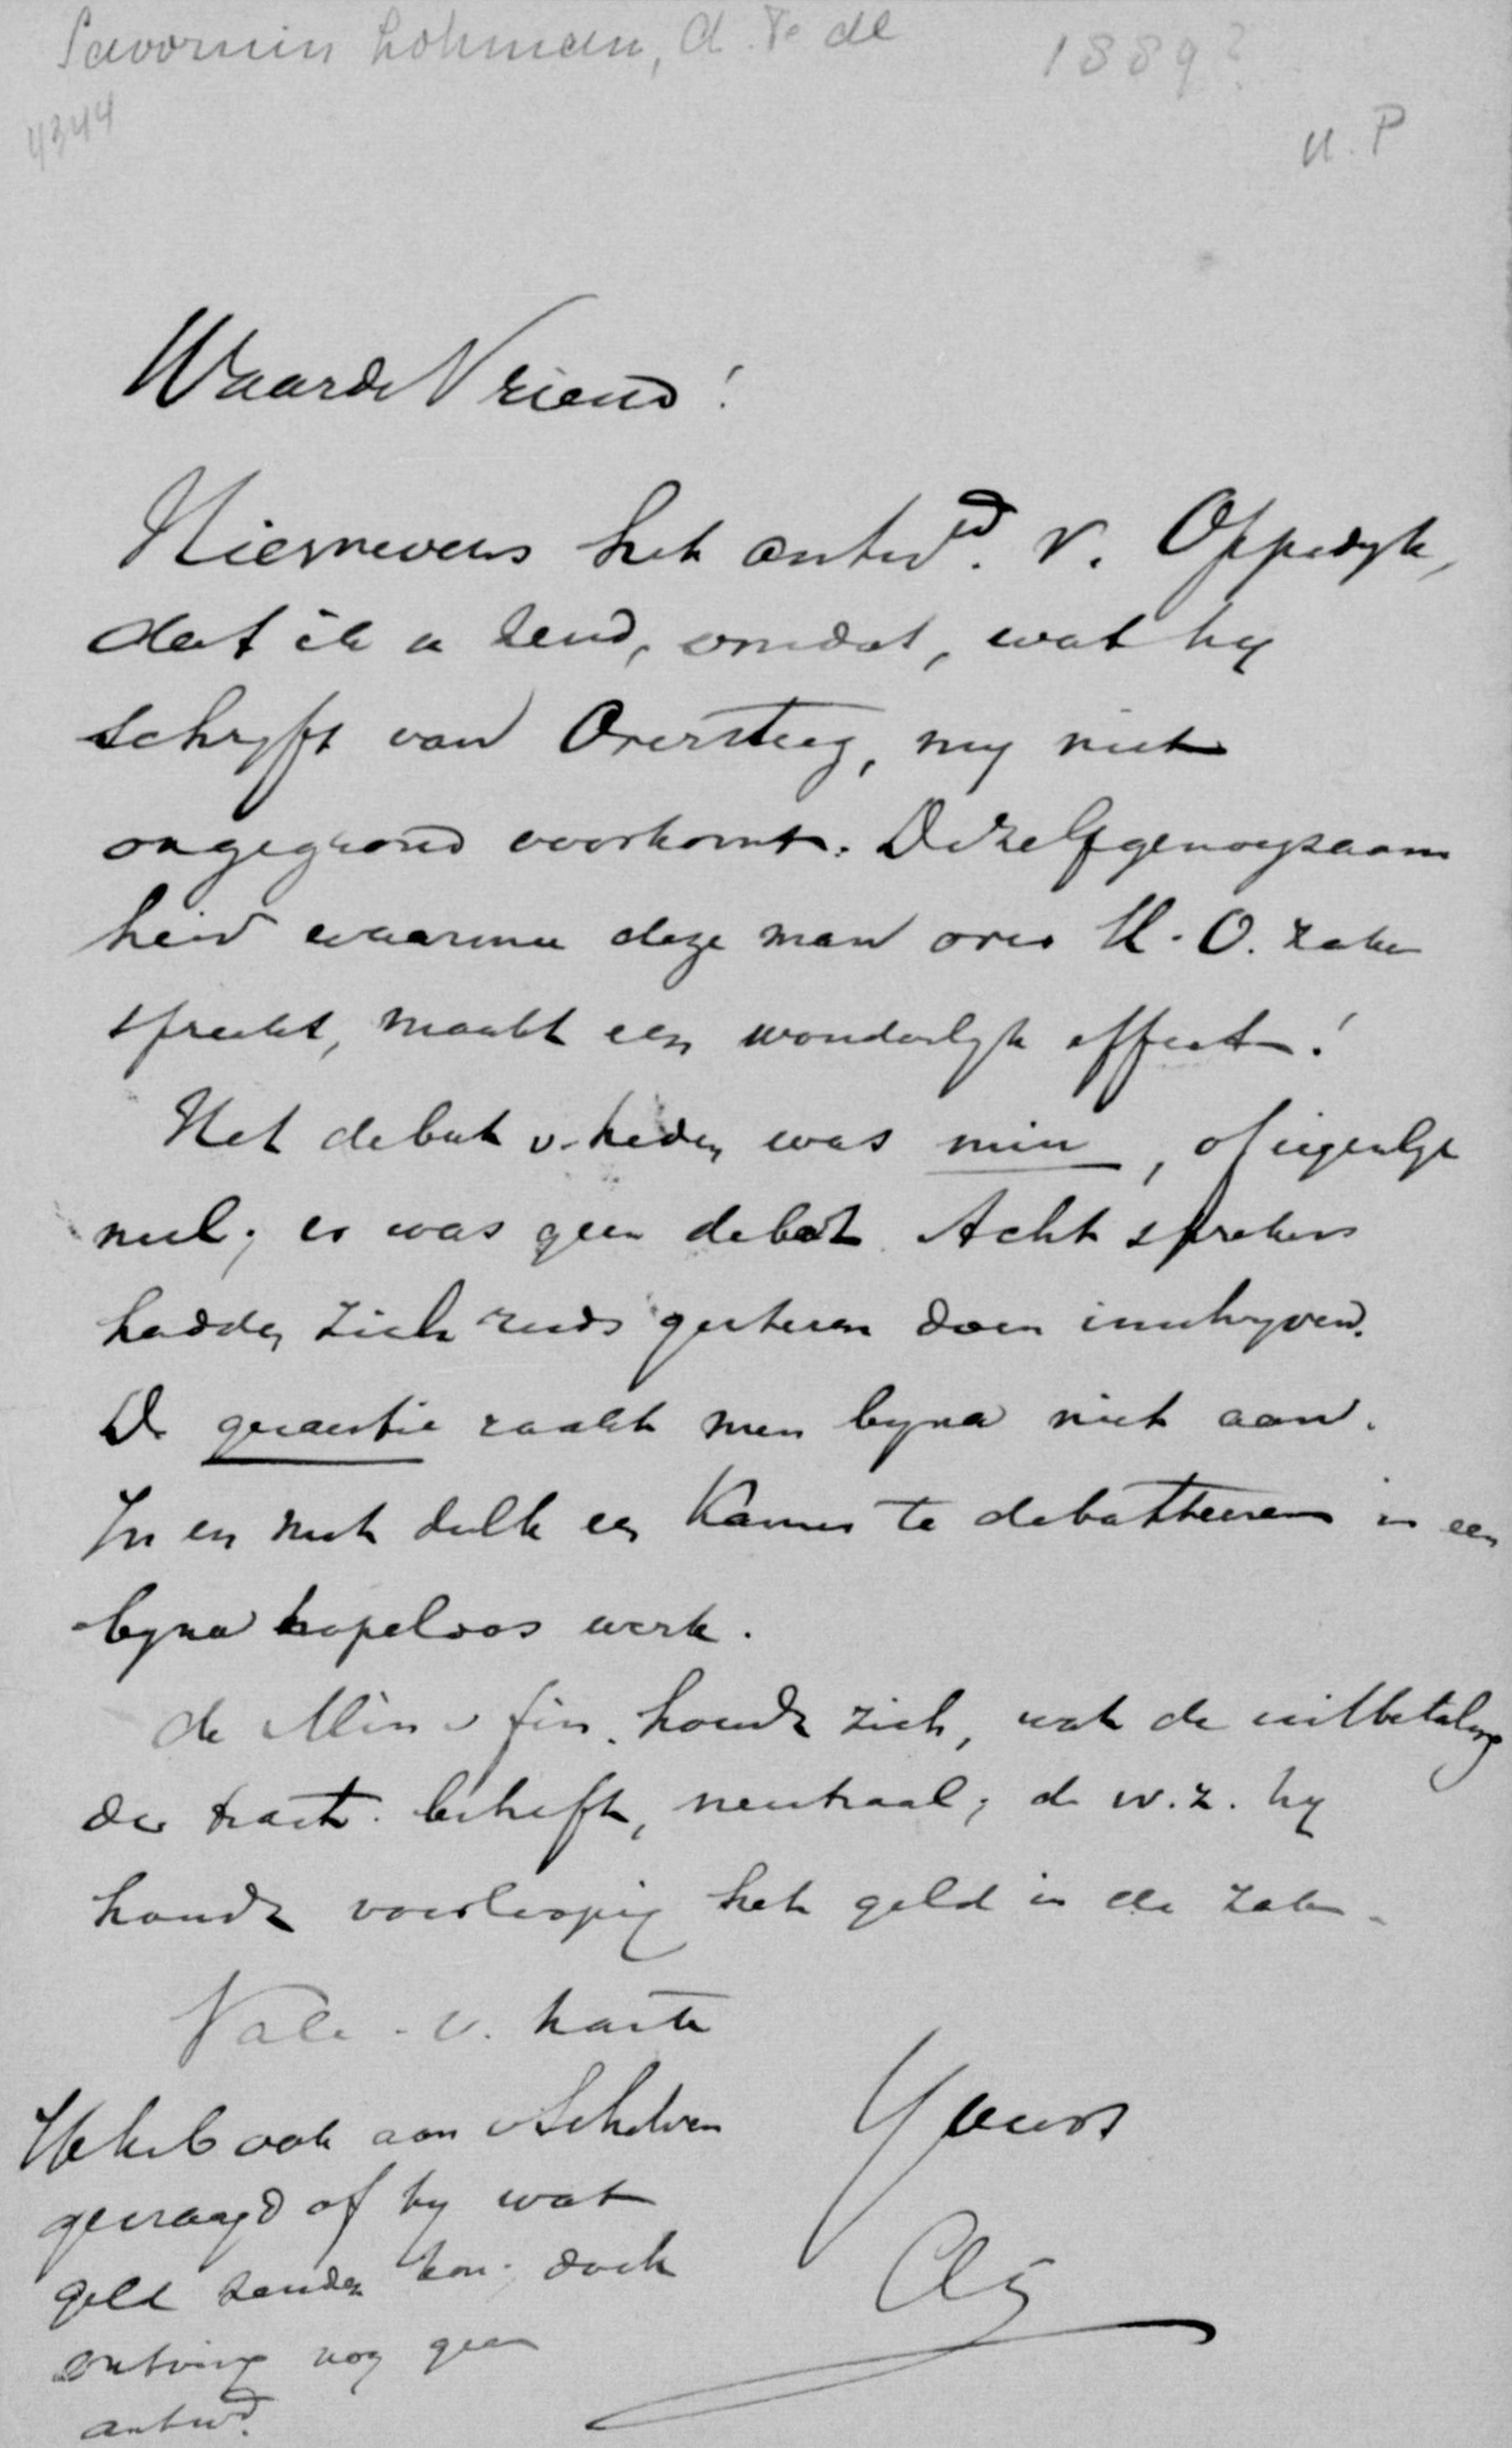 Savornin Lohman, A. F. de
1889?
4344
U. P
Waarde Vriend!
Hiernevens het antwd. v. Oppedyk,
dat ik u zend, omdat, wat hy
schryft van Oversteeg, my niet
ongegrond voorkomt. De zelfgenoegzaam
heid waarmee deze man over H.O. zaken
spreekt, maakt een wonderlyk effect!
Het debat v. heden was min, of eigenlyk
nul; er was geen debat. Acht sprekers
hadden zich reeds gisteren doen inschryven.
De quaestie raakt men byna niet aan.
In en met zulk een Kamer te debatteeren is een
byna hopeloos werk.
de Min v fin. houdt zich, wat de uitbetaling
der tract. betreft, neutraal; d. w. z. hy
houdt voorloopig het geld in de zak.
Vale. v. harte
Yours
Ik heb ook aan v Schelven
gevraagd of hy wat
geld zenden kon; doch
ontving nog geen
antwd.